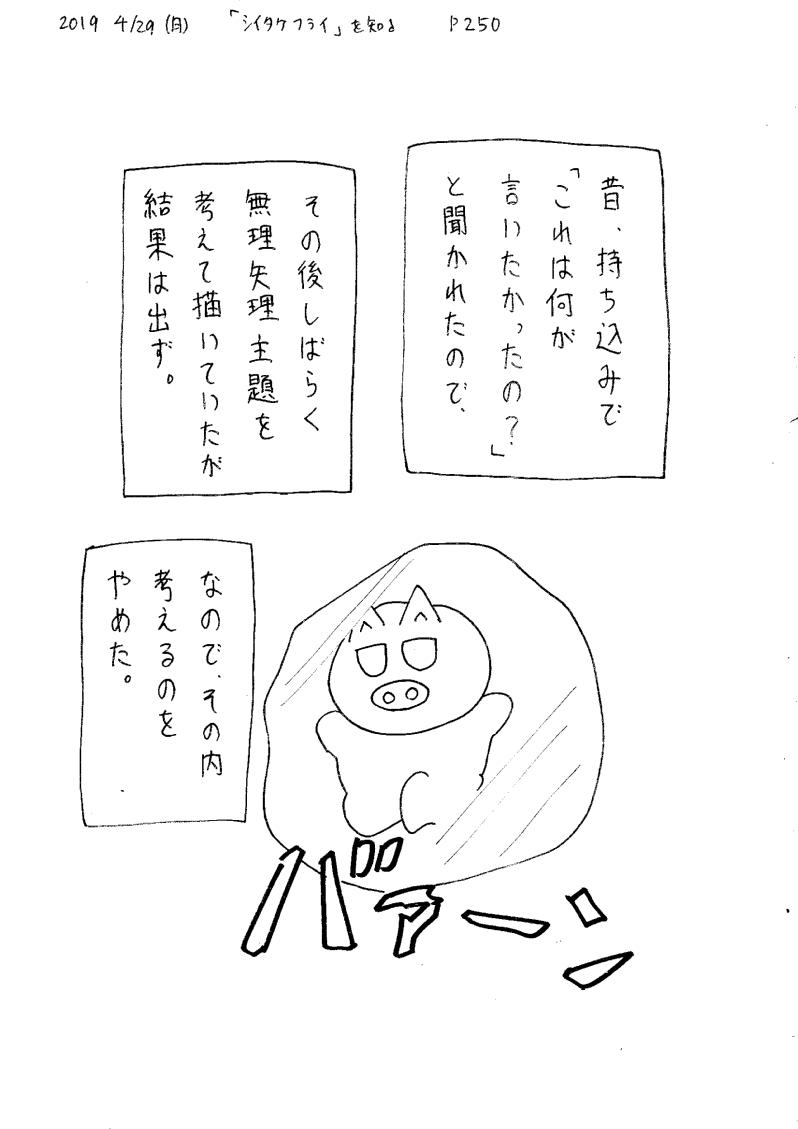 2019 4/29(月) 「シイタケフライ」を知る P250
昔、持ち込みで
「これは何が
言いたかったの?」
と聞かれたので、
その後しばらく
無理矢理主題を
考えて描いていたが
結果は出ず。
なので、その内
考えるのを
やめた。
バァーン